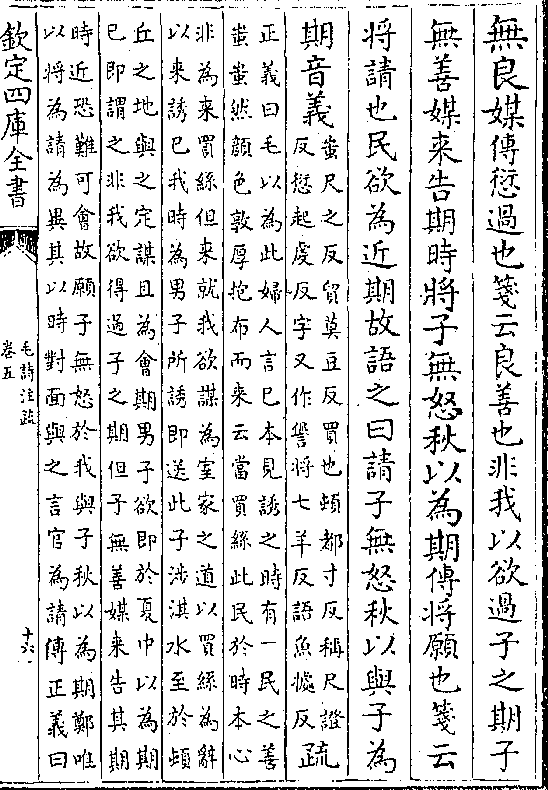 無良媒傳愆過也箋云良善也非我以欲過子之期子
無善媒来告期時將子無怒秋以為期傳將願也箋云
將請也民欲為近期故語之曰請子無怒秋以與子為
期音義蚩尺之反貿莫豆反買也頓都寸反稱尺證
反愆起虔反字又作諐將七羊反語魚據反疏
正義曰毛以為此婦人言已本見誘之時有一民之善
蚩蚩然顔色敦厚抱布而来云當買絲此民於時本心
非為来買絲但来就我欲謀為室家之道以買絲為辭
以来誘已我時為男子所誘即送此子涉淇水至於頓
丘之地與之定謀且為會期男子欲即於夏中以為期
已即謂之非我欲得過子之期但子無善媒来告其期
時近恐難可會故願子無怒於我與子秋以為期鄭唯
以將為請為異其以時對面與之言宜為請傳正義曰
欽定四庫全書
毛詩注疏
卷五
十六